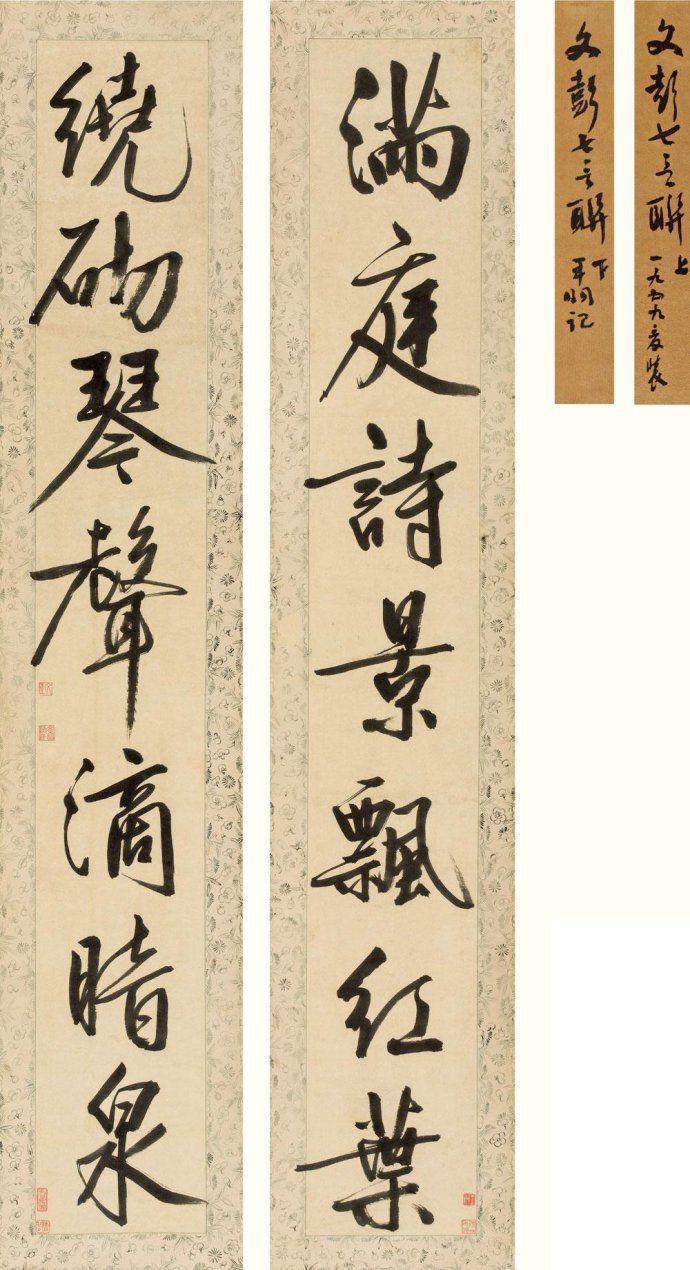 文彭七言聯 上
一九五九
文彭七言聯 下
記
滿庭詩景飄紅葉
繞砌琴聲滴暗泉